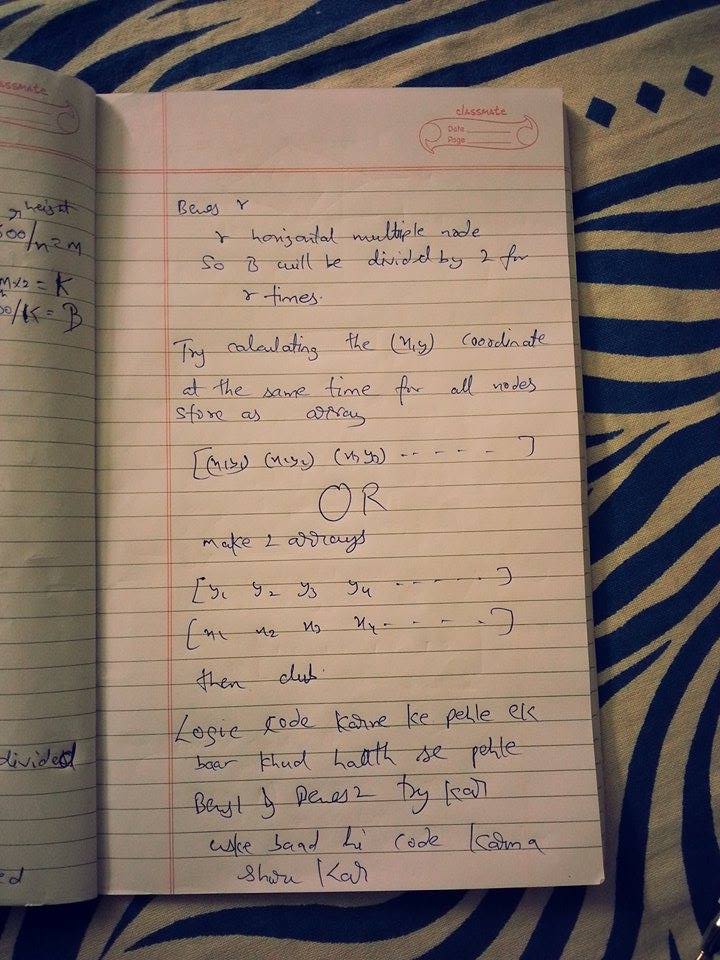 assmate
height
500/n = m
mx2 = K
00/K = B
divided
ed
classmate
Date
Page
Benes r
r horizontal multiple node
So B will be divided by 2 for
r times.
Try calculating the (x,y) coordinate
at the same time for all nodes
store as array
[(x1y1) (x2y2) (x3 y3) - - - - - ]
OR
make 2 arrays
[y1 y2 y3 y4 - - - - - ]
[x1 x2 x3 x4 - - - - ]
then club.
Logic code karne ke pehle ek
baar khud haath se pehle
Benes1 & Benes2 try kar
uske baad hi code karna
shuru kar